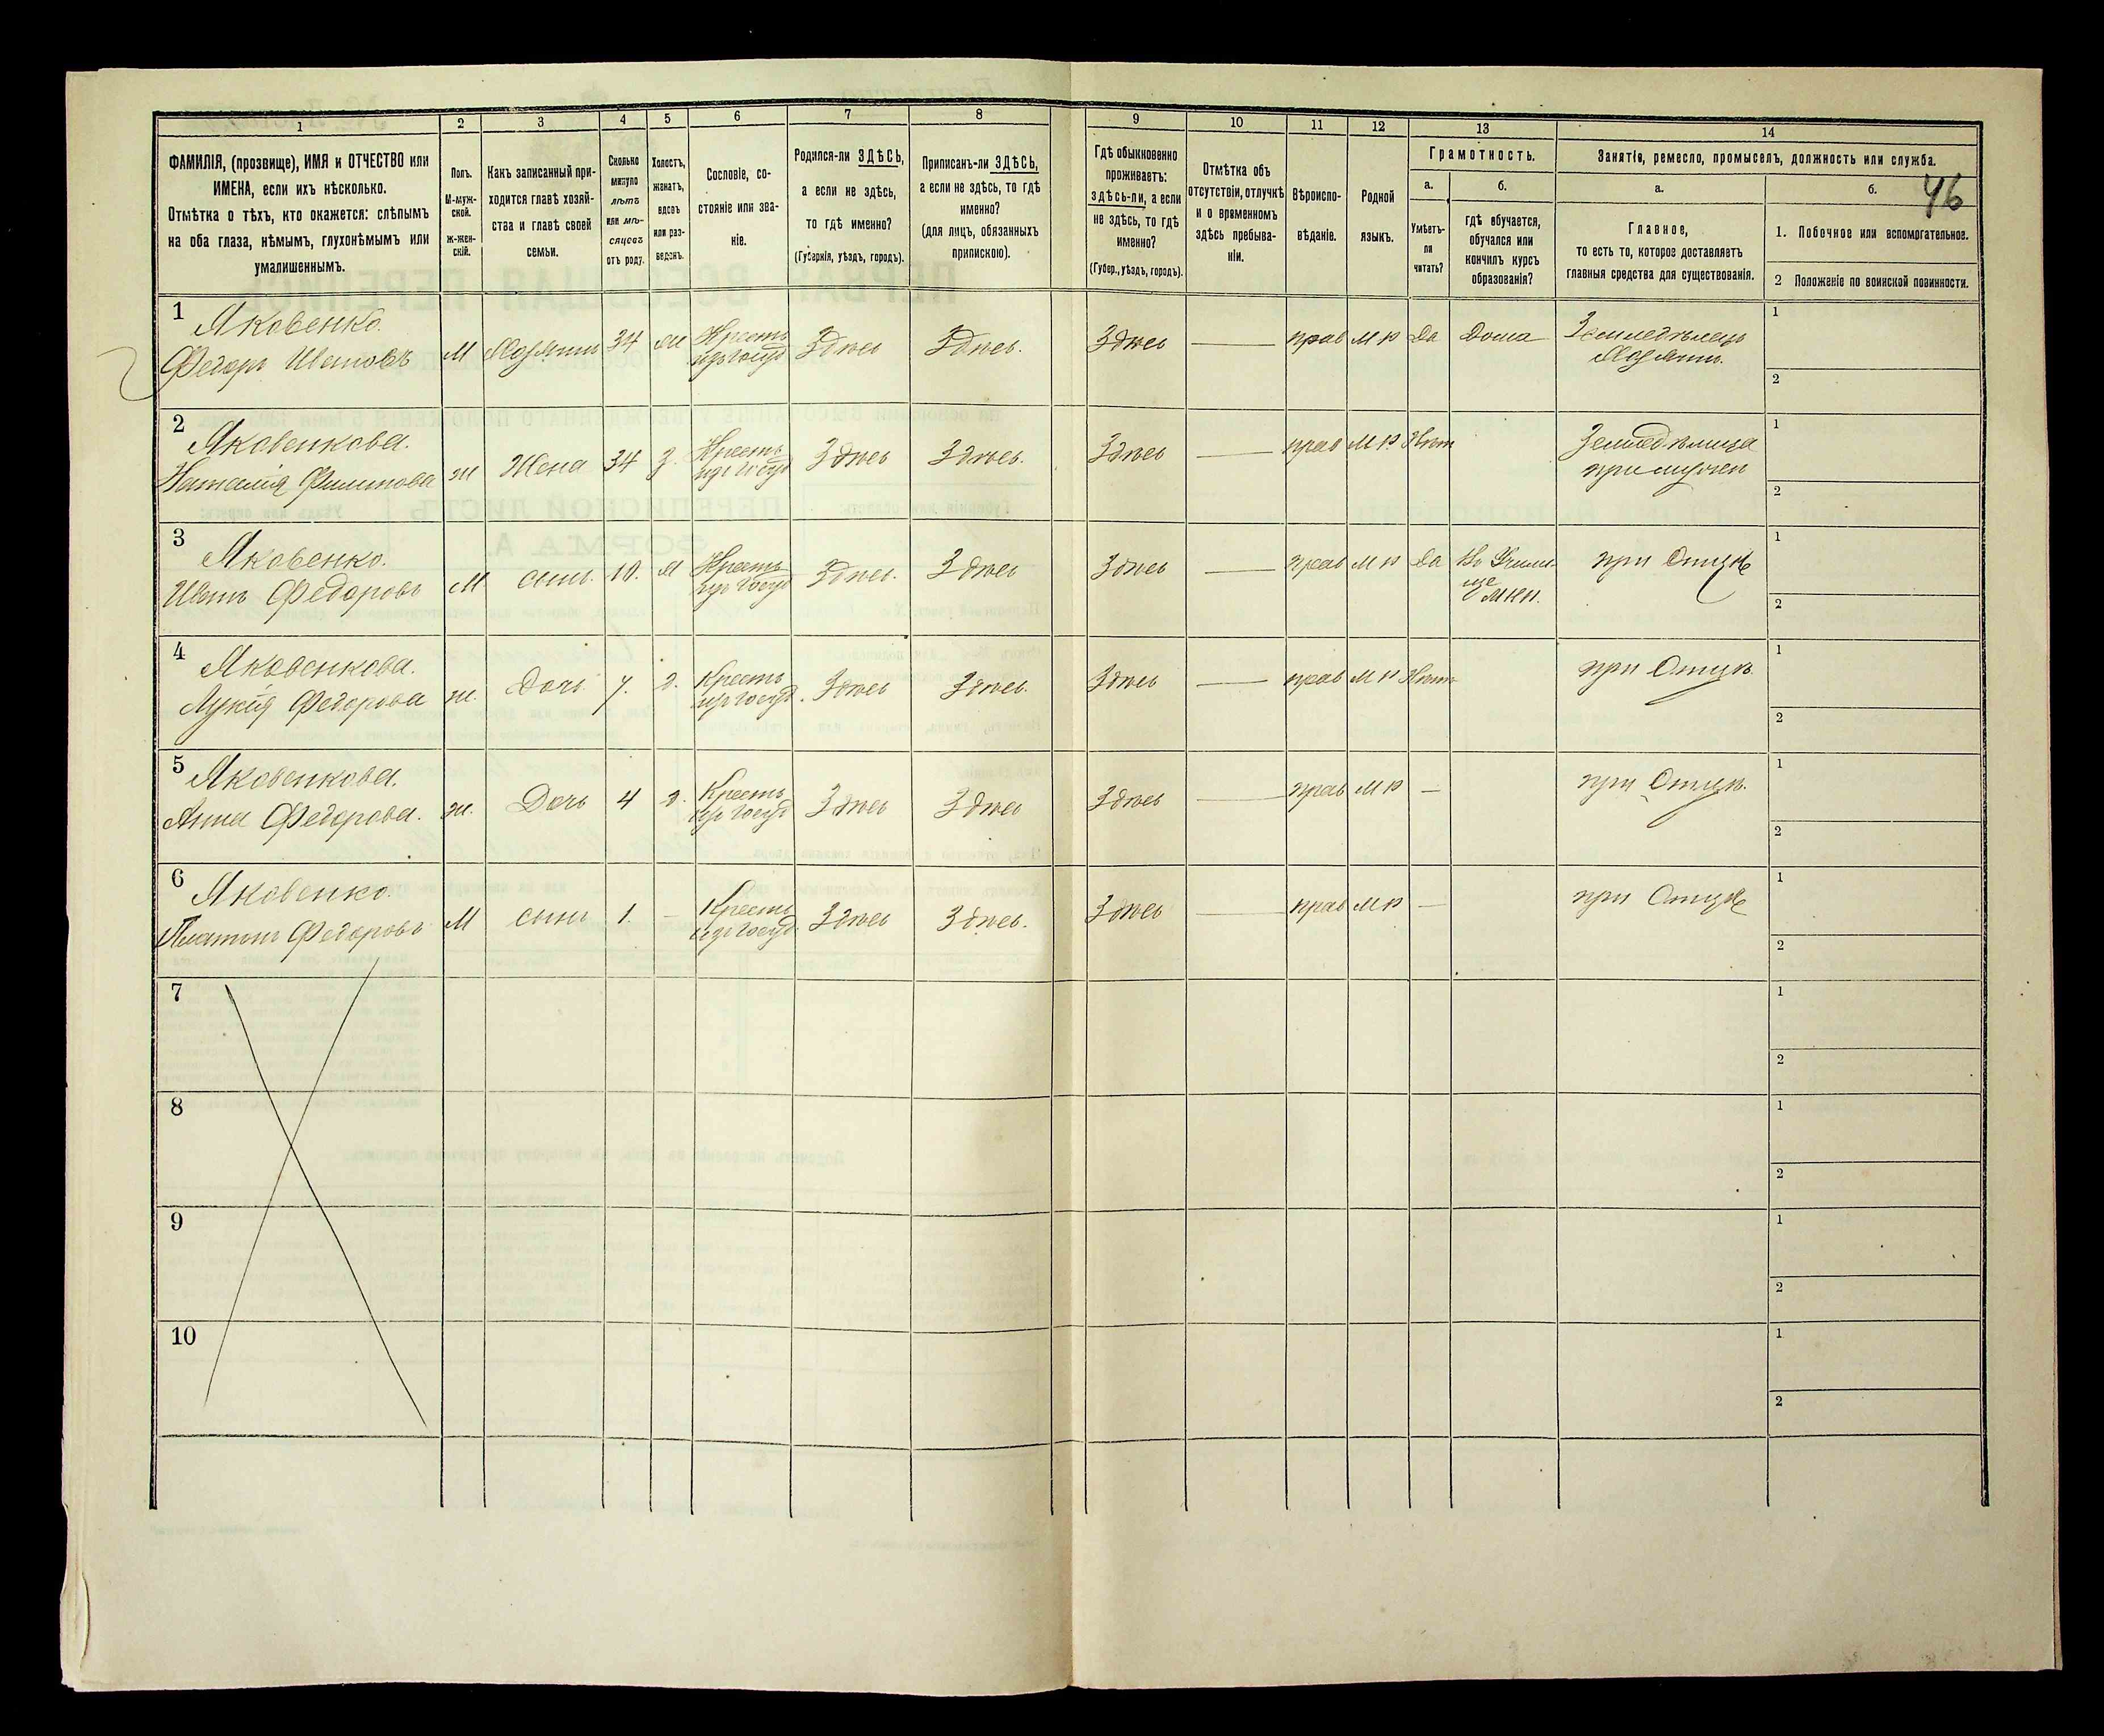 46
1 2 3 4 5 6 7 8 9 10 11 12 13 14
ФАМИЛІЯ, (прозвище), ИМЯ и ОТЧЕСТВО или
ИМЕНА, если ихъ нѣсколько.
Отмѣтка о тѣхъ, кто окажется: слѣпымъ
на оба глаза, нѣмымъ, глухонѣмымъ или
умалишеннымъ.
Полъ.
М-муж-
ской.
ж-жен-
скій.
Какъ записанный при-
ходится главѣ хозяй-
ства и главѣ своей
семьи.
Сколько
минуло
лѣтъ
или мѣ-
сяцевъ
отъ роду.
Холостъ,
женатъ,
вдовъ
или раз-
веденъ.
Сословіе, со-
стояніе или зва-
ніе.
Родился-ли ЗДѢСЬ,
а если не здѣсь,
то гдѣ именно?
(Губернія, уѣздъ, городъ).
Приписанъ-ли ЗДѢСЬ,
а если не здѣсь, то гдѣ
именно?
(для лицъ, обязанныхъ
припискою).
Гдѣ обыкновенно
проживаетъ:
здѣсь-ли, а если
не здѣсь, то гдѣ
именно?
(Губер., уѣздъ, городъ).
Отмѣтка объ
отсутствіи, отлучкѣ
и о временномъ
здѣсь пребыва-
ніи.
Вѣроиспо-
вѣданіе.
Родной
языкъ.
Грамотность.
а.
Умѣетъ-
ли
читать?
б.
гдѣ обучается,
обучался или
кончилъ курсъ
образованія?
Занятіе, ремесло, промыселъ, должность или служба.
а.
Главное,
то есть то, которое доставляетъ
главныя средства для существованія.
б.
1. Побочное или вспомогательное.
2 Положеніе по воинской повинности.
1 Яковенко.
Федоръ Ивановъ М Хозяинъ 34 Крестъ
изъ госуд Здѣсь Здѣсь. Здѣсь — прав М Р Да Дома Земледѣлецъ
Хозяинъ. 1
2
2 Яковенкова.
Наталія Филипова ж Жена 34 З. Крестъ
изъ госуд Здѣсь Здѣсь. Здѣсь — прав М Р. Нѣтъ Земледѣлица
при мужѣ 1
2
3 Яковенко.
Иванъ Федоровъ М сынъ. 10. Крестъ
изъ госуд Здѣсь. Здѣсь Здѣсь — прав М Р Да Въ Учили-
ще при Отцѣ 1
2
4 Яковенкова.
Лукія Федорова ж. Дочь 7. д. Крестъ
изъ госуд. Здѣсь Здѣсь. Здѣсь — прав М Р Нѣтъ при Отцѣ. 1
2
5 Яковенкова.
Анна Федорова. ж. Дочь 4 д. Крестъ
изъ госуд Здѣсь Здѣсь Здѣсь — прав М Р — при Отцѣ. 1
2
6 Яковенко.
Платонъ Федоровъ М сынъ 1. — Крестъ
изъ госуд. Здѣсь Здѣсь. Здѣсь — прав М Р — при Отцѣ 1
2
7 1
2
8 1
2
9 1
2
10 1
2